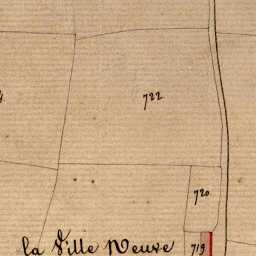 722
720
la Ville Neuve 719